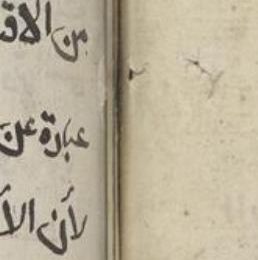 من الاق
عبارة عن
لأن الأ